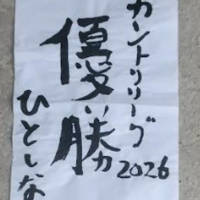 カントリリーグ
2026
優勝
ひとしな